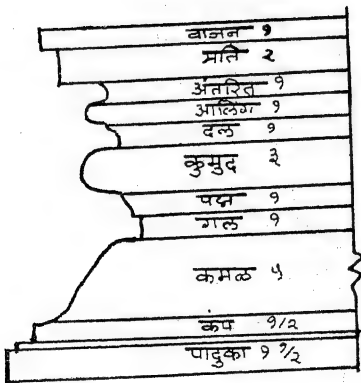 वाजन १
मति २
अंतरित १
आलिंग १
दल १
कुमुद ३
पद्म १
गल १
कमळ ५
कंप १/२
पादुका १ १/२